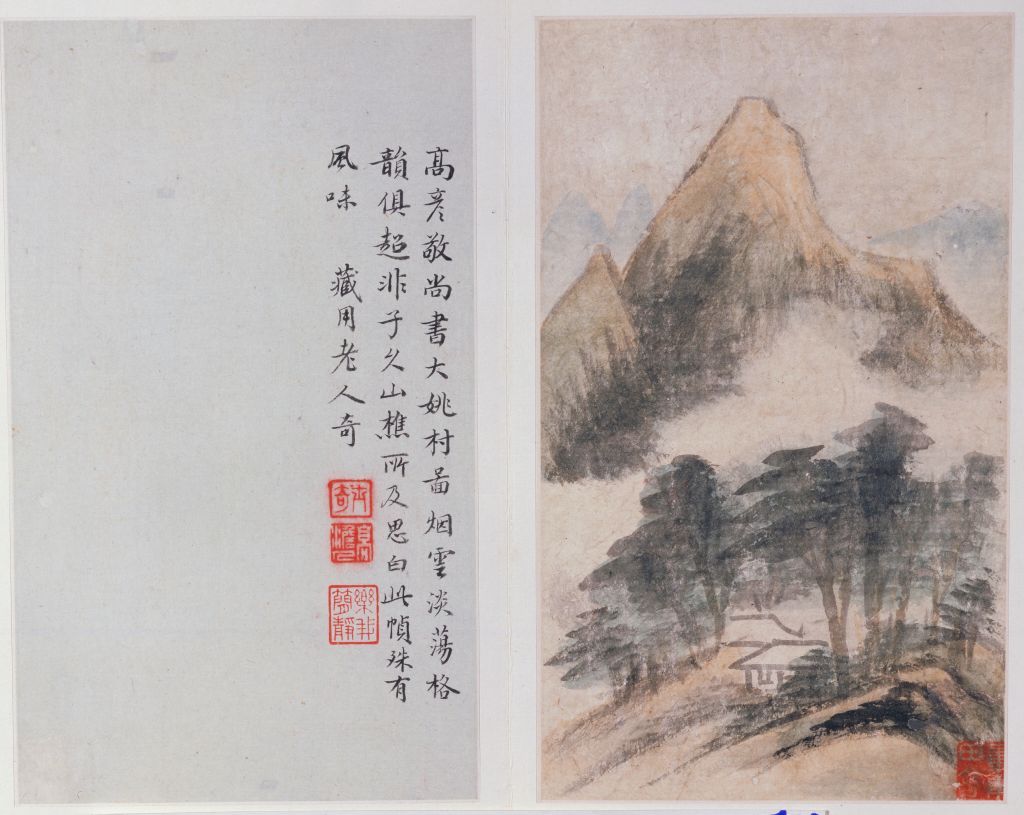 高彦敬尚書大姚村啚烟雲淡蕩格
韻俱超非子久山樵所及思白此幀殊有
風味　藏用老人奇